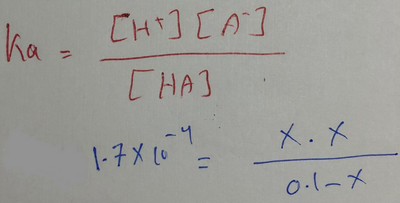 Ka = [H⁺] [A⁻] / [HA]
1.7 × 10⁻⁴ = x . x / 0.1 - x